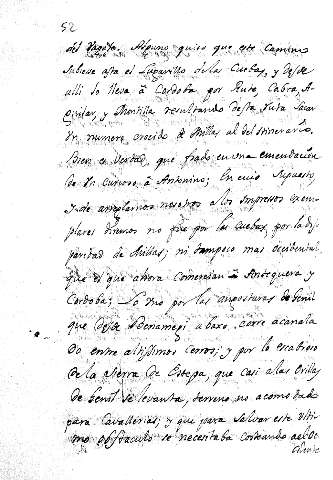 52
del Vageta. Alguno quiso que este camino
subiese asta el Lugarillo de las Cuebas, y desde
alli lo lleva â Cordoba por Rute, Cabra, A-
guilar, y Montilla resultando desta ruta sacar
Un numero crecido de Millas al del Itinerario.
Bien es verdad, que fiado en una emendacion
de Un curioso â Antonino; En cuio supuesto
y de arreglarnos nosotros a los Impresos exem-
plares diremos no fue por las Cuebas, por la dis-
paridad de Millas; ni tampoco mas occidental
que el que ahora comercian â Antequera y
Cordoba; Lo uno por las angosturas de Genil
que desde Benamegi abaxo, corre acanala-
do entre altissimos cerros; y por lo escabroso
de la sierra de Estepa, que casi a las orillas
de Genil se levanta, terreno no acomodado
para Cavallerias; y que para salvar este ulti-
mo obstaculo se necesitaba costeando al Oc-